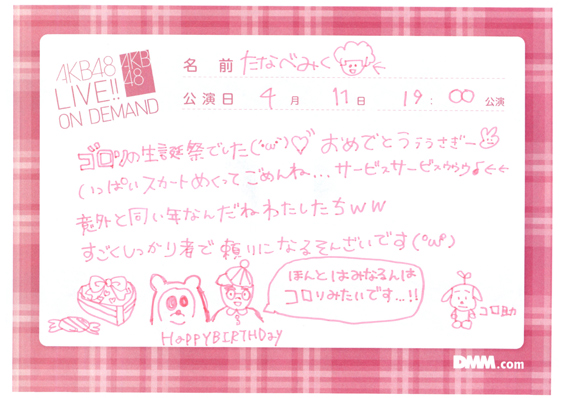 AKB48
LIVE!!
ON DEMAND
AKB
48
名前 たなべみく
公演日 4月 11日 19:00 公演
の生誕祭でした(・ω・)♡ おめでとうううさぎー
いっぱいスカートめくってごめんね... サービスサービスゥゥゥ♪←←
意外と同い年なんだねわたしたちww
すごくしっかり者で頼りになるそんざいです(°ω°)
ほんとはみなるんは
コロリみたいです...!!
コロ助
HAPPYBIRTHDay
DMM.com